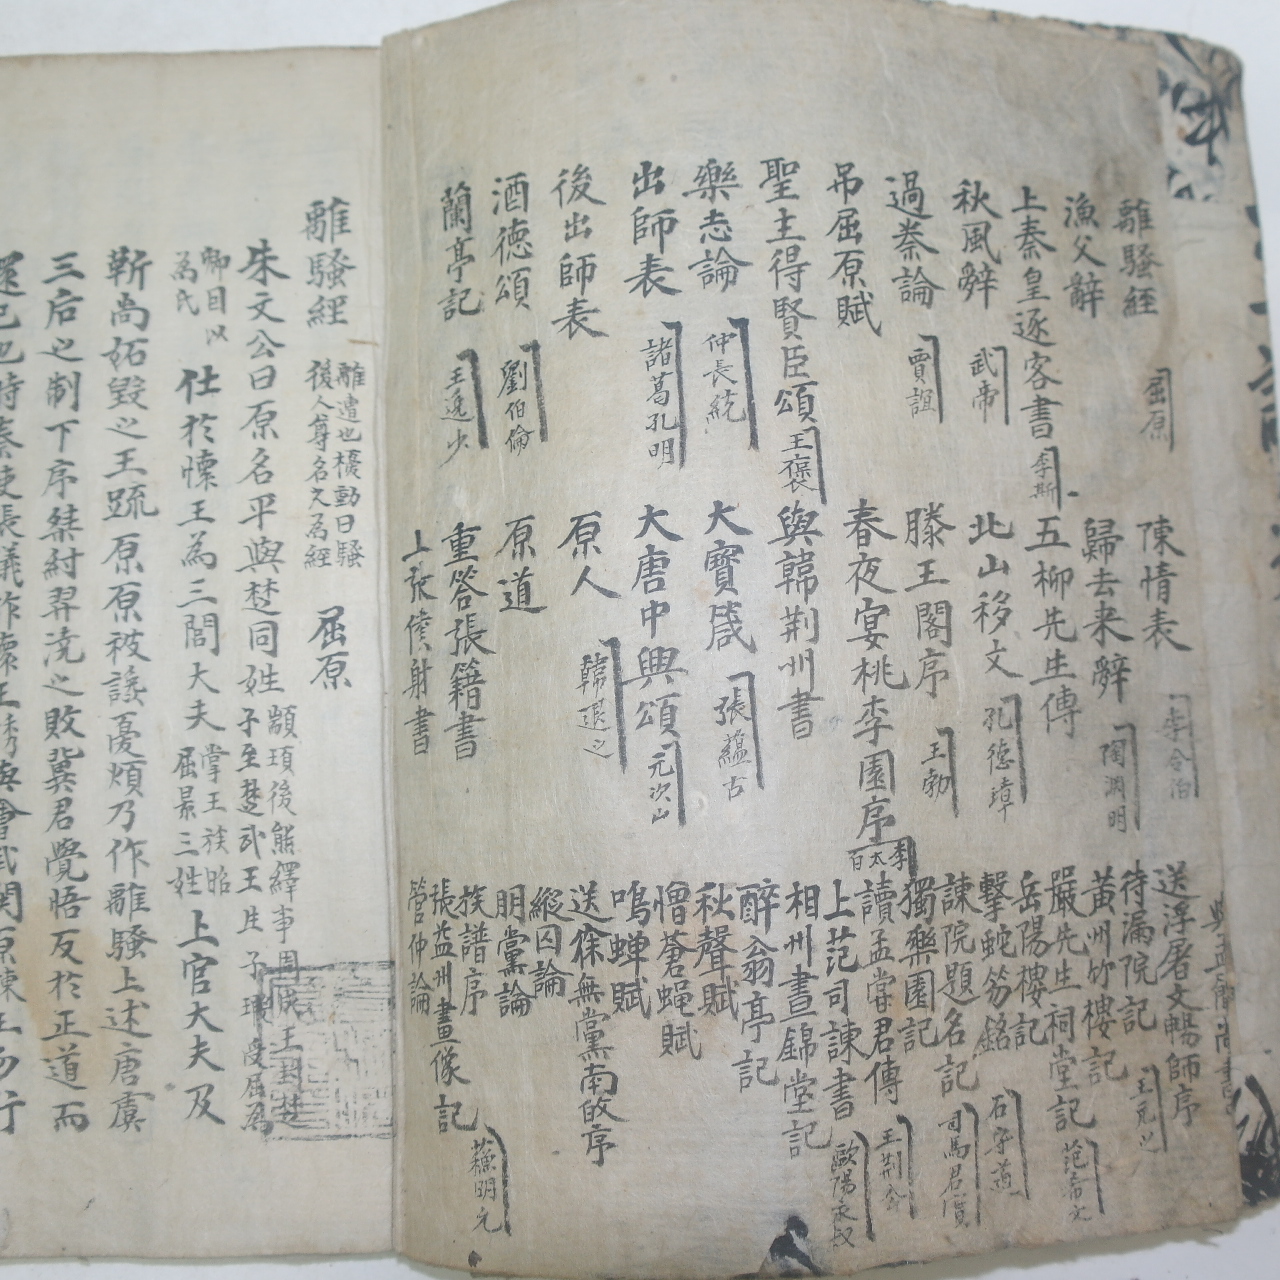 離騷經 屈原
漁父辭
上秦皇逐客書 李斯
秋風辭 武帝
過秦論 賈誼
吊屈原賦
聖主得賢臣頌 王褒
樂志論 仲長統
出師表 諸葛孔明
後出師表
酒德頌 劉伯倫
蘭亭記 王逸少
陳情表 李令伯
歸去来辭 陶淵明
五柳先生傳
北山移文 孔德璋
滕王閣序 王勃
春夜宴桃李園序 李太白
與韓荆州書
大寶箴 張蘊古
大唐中興頌 元次山
原人 韓退之
原道
重答張籍書
上張僕射書
與孟簡尚書
送浮屠文暢師序
待漏院記 王元之
黃州竹樓記
嚴先生祠堂記 范希文
岳陽樓記
擊蛇笏銘 石守道
諫院題名記 司馬君實
獨樂園記
讀孟嘗君傳 王荆公
上范司諫書 歐陽永叔
相州晝錦堂記
醉翁亭記
秋聲賦
憎蒼蝇賦
鳴蝉賦
送徐無黨南敀序
縱囚論
朋黨論
族譜序
張益州畫像記 蘓明允
管仲論
離騷經 離遭也擾動曰騷後人尊名之為經 屈原
朱文公曰原名平與楚同姓 顓頊後熊繹事周成王封楚子至楚武王生子瑕受屈為
卿因以為氏 仕於懷王為三閭大夫 掌王族昭屈景三姓 上官大夫及
靳尚妬毀之王疏原原被讒憂煩乃作離騷上述唐虞
三后之制下序桀紂羿澆之敗冀君覺悟反於正道而
還己也時秦使張儀詐懷王誘與會武関原諫王勿行